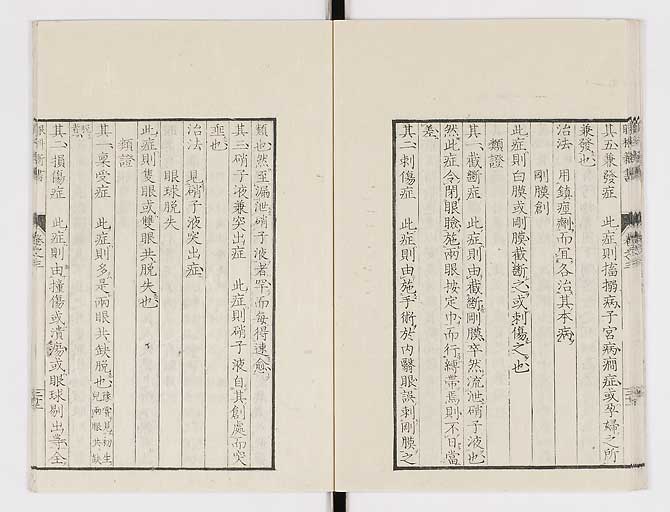 其五兼發症　此症則搐搦病子宮病癇症或孕婦之所
兼發也
治法　用鎮痙劑而宜各治其本病
剛膜創
此症則白膜或剛膜截斷之或刺傷之也
類證
其一截斷症　此症則由截斷剛膜卒然流泄硝子液也
然此症令閉眼瞼施兩眼按定巾而行縛帶焉則不日當
差
其二刺傷症　此症則由施手術於内翳眼誤刺剛膜之
類也然至漏泄硝子液者罕而每得速愈
其三硝子液兼突出症　此症則硝子液自其創處而突
垂也
治法　見硝子液突出症
眼球脱失
此症則隻眼或雙眼共脱失也
類證
其一稟受症　此症則多是兩眼共缺脱也豫嘗見初生兒兩眼共缺
脱者
其二損傷症　此症則由撞傷或潰瘍或眼球剔出等全
眼科新書
卷之三